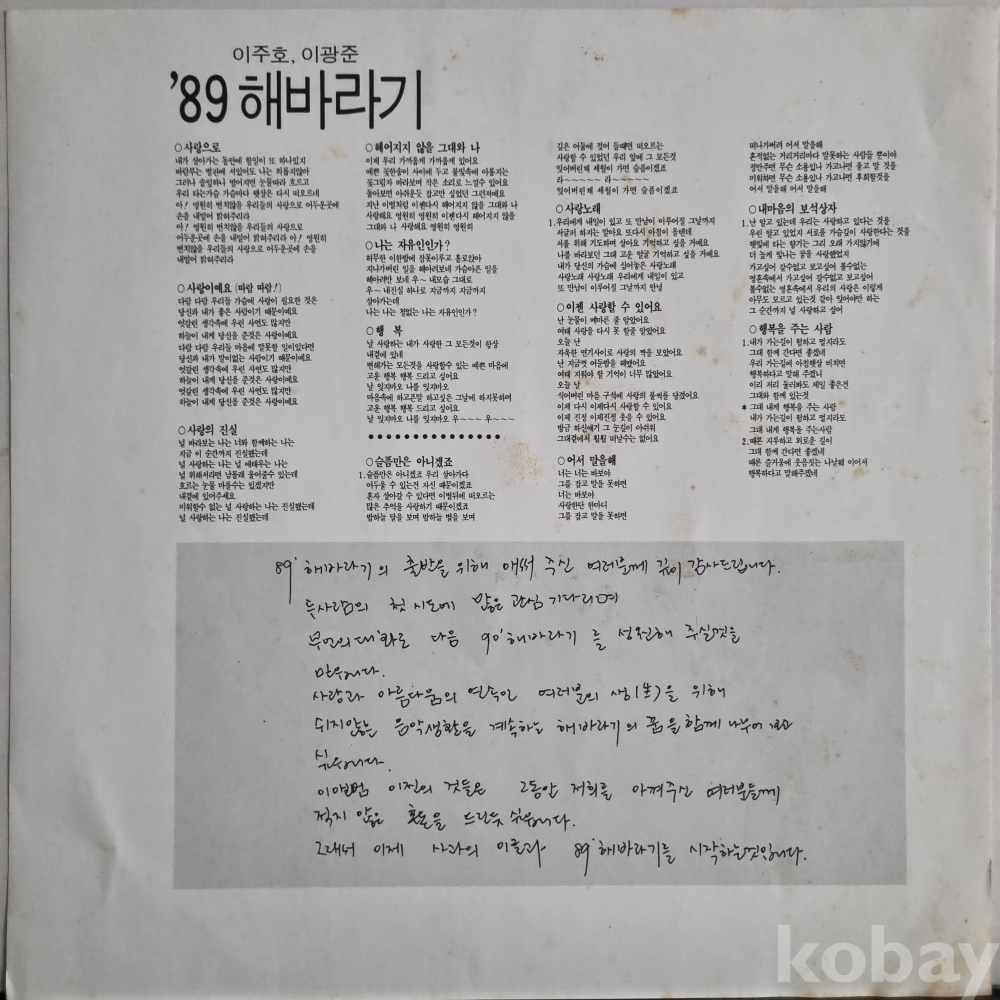 이주호, 이광준
'89 해바라기
○사랑으로
내가 살아가는 동안에 할일이 또 하나있지
바람부는 벌판에 서있어도 나는 외롭지않아
그러나 솔잎하나 떨어지면 눈물따라 흐르고
우리 타는가슴 가슴마다 햇살은 다시 떠오르네
아! 영원히 변치않을 우리들의 사랑으로 어두운곳에
손을 내밀어 밝혀주리라
아! 영원히 변치않을 우리들의 사랑으로
어두운곳에 손을 내밀어 밝혀주리라 아! 영원히
변치않을 우리들의 사랑으로 어두운곳에 손을
내밀어 밝혀주리라
○사랑이예요 (따람 따람!)
다람 다람 우리들 가슴에 사랑이 필요한 것은
당신과 내가 좋은 사람이기 때문이예요
엇갈린 생각속에 우린 사연도 많지만
하늘이 내게 당신을 준것은 사랑이예요
다람 다람 우리들 마음에 말못할 일이있다면
당신과 내가 말이없는 사람이기 때문이예요
엇갈린 생각속에 우린 사연도 많지만
하늘이 내게 당신을 준것은 사랑이예요
엇갈린 생각속에 우린 사연도 많지만
하늘이 내게 당신을 준것은 사랑이예요
○사랑의 진실
널 바라보는 나는 너와 함께하는 나는
지금 이 순간까지 진실했는데
널 사랑하는 나는 널 애태우는 나는
널 위해서라면 남몰래 울어줄수 있는데
흐르는 눈물 마를수는 있겠지만
내곁에 있어주세요
미워할수 없는 널 사랑하는 나는 진실했는데
널 사랑하는 나는 진실했는데
○헤어지지 않을 그대와 나
이제 우리 가까웁게 가까웁게 있어요
예쁜 꽃한송이 사이에 두고 불빛속에 아롱지는
꽃그림자 바라보며 작은 소리로 느낄수 있어요
돌아보면 아쉬운듯 잡고만 싶었던 그러저예요
지난 이별처럼 이젠다시 헤어지지 않을 그대와 나
사랑해요 영원히 영원히 이젠다시 헤어지지 않을
그대와 나 사랑해요 영원히 영원히
○나는 자유인인가?
허무한 이한밤에 잠못이루고 홀로앉아
지나가버린 일을 헤아려보네 가슴아픈 일을
헤아려만 보네 우~ 내모습 그대로
우~ 내진실 하나로 지금까지 지금까지
살아가는데
나는 나는 철없는 나는 자유인인가?
○행 복
날 사랑하는 내가 사랑한 그 모든것이 항상
내곁에 있네
변해가는 모든것을 사랑할수 있는 예쁜 마음에
고운 행복 행복 드리고 싶어요
날 잊지마오 나를 잊지마오
마음속에 하고픈말 하고싶은 그날에 하지못하며
고운 행복 행복 드리고 싶어요
날 잊지마오 나를 잊지마오 우~~~~ 우~~~~
○슬픔만은 아니겠죠
1.슬픔만은 아니겠죠 우리 살아가다
어두울 수 있는건 자신 때문이겠죠
혼자 살아갈 수 있다면 이별뒤에 떠오르는
많은 추억을 사랑하기 때문이겠죠
밤하늘 달을 보며 밤하늘 별을 보며
깊은 어둠에 젖어 들때면 떠오르는
사랑할 수 있었던 우리 앞에 그 모든것
잊혀버린채 세월이 가면 슬픔이겠죠
라~~~~~ 라~~~~~
잊혀버린채 세월이 가면 슬픔이겠죠
○사랑노래
1.우리에게 내일이 있고 또 만남이 이루어질 그날까지
서글퍼 하지는 말아요 또다시 아침이 올텐데
서를 위해 기도하며 살아요 기억하고 싶을 거예요
나를 바라보던 그대 고운 얼굴 기억하고 싶을 거예요
내가 당신의 가슴에 심어놓은 사랑노래
사랑노래 사랑노래 우리에게 내일이 있고
또 만남이 이루어질 그날까지 안녕
○이젠 사랑할 수 있어요
난 눈물이 메마른 줄 알았어요
여태 사랑을 다시 못 할줄 알았어요
오늘 난
자욱한 연기사이로 사랑의 짝을 보았어요
난 지금껏 어둔밤을 헤맸어요
여태 지워야 할 기억이 너무 많았어요
오늘 날
식어버린 마음 구석에 사랑의 불씨를 당겼어요
이제 다시 이제다시 사랑할 수 있어요
이제 진정 이제진정 웃을 수 있어요
방금 하신얘기 그 눈길이 아쉬워
그대곁에서 훨훨 떠날수는 없어요
○어서 말을해
너는 너는 바보야
그를 잡고 말을 못하면
너는 바보야
사랑한단 한마디
그를 잡고 말을 못하면
떠나가버려 어서 말을해
흔적없는 거리거리마다 말못하는 사람들 뿐이야
정만주면 무슨 소용있나 가고나면 울고 말 것을
미워하면 무슨 소용있나 가고나면 후회할것을
어서 말을해 어서 말을해
○내마음의 보석상자
1.난 알고 있는데 우리는 사랑하고 있다는 것을
우린 알고 있었지 서로를 가슴깊이 사랑한다는 것을
햇빛에 타는 향기는 그리 오래 가지않기에
더 높게 빛나는 꿈을 사랑했었지
가고싶어 갈수없고 보고싶어 볼수없는
영혼속에서 가고싶어 갈수없고 보고싶어
볼수없는 영혼속에서 우리의 사랑은 이렇게
아무도 모르고 있는것 같아 잊어야만 하는
그 순간까지 널 사랑하고 싶어
○행복을 주는 사람
1.내가 가는길이 험하고 멀지라도
그대 함께 간다면 좋겠네
우리 가는길에 아침햇살 비치면
행복하다고 말해 주겠네
이리 저리 둘러봐도 제일 좋은건
그대와 함께 있는것
*그대 내게 행복을 주는 사람
내가 가는길이 험하고 멀지라도
그대 내게 행복을 주는사람
2.때론 지루하고 외로운 길이
그대 함께 간다면 좋겠네
때론 즐거움에 웃음짓는 나날페 이어서
행복하다고 말해주겠네
89' 해바라기의 출반을 위해 애써 주신 여러분께 깊이 감사드립니다.
두사람의 첫 시도에 많은 관심 기다리며
무언의 대화로 다음 90' 해바라기를 성원해 주실것을
믿습니다.
사랑과 아름다움의 연속인 여러분의 생(生)을 위해
쉬지않는 음악생활을 계속하는 해바라기의 꿈을 함께 나누어 보고
싶습니다.
이앨범 이전의 것들은 그동안 저희를 아껴주신 여러분들께
적지 않은 혼돈을 드린듯 싶습니다.
그래서 이제 사과의 이름과 89' 해바라기를 시작하는것입니다.
kobay